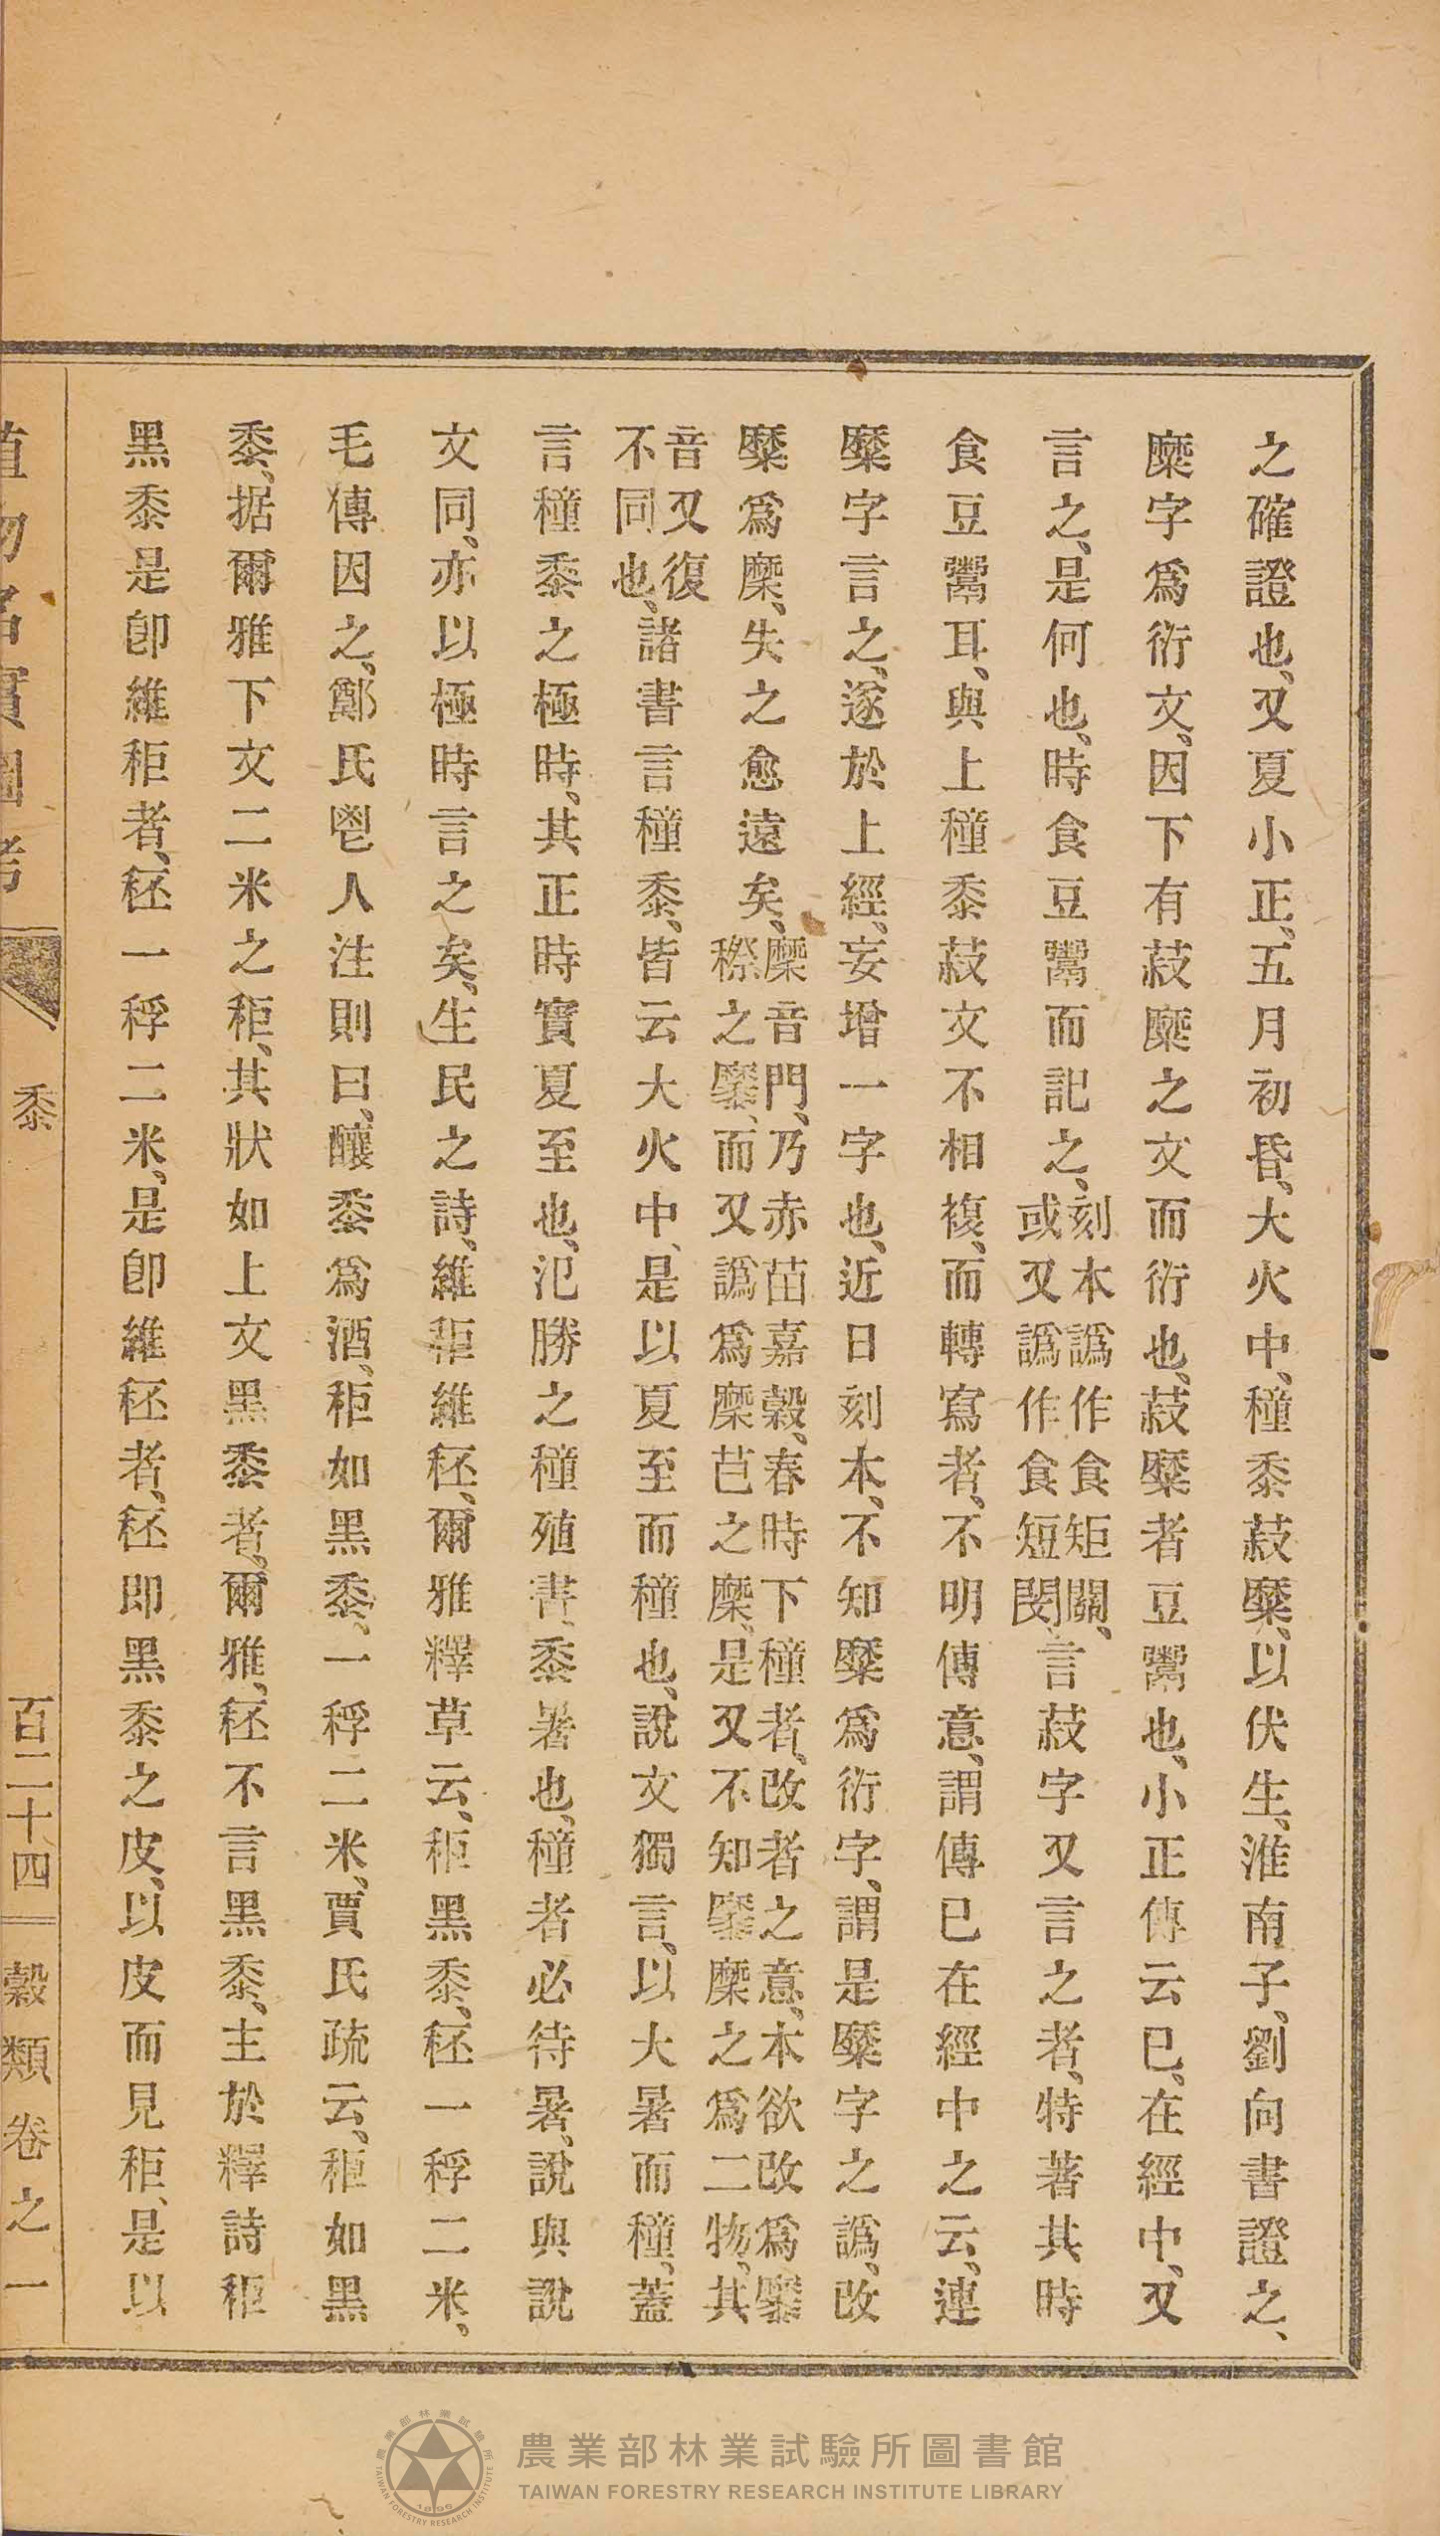 之確證也、又夏小正、五月初昏、大火中、種黍菽糜、以伏生、淮南子、劉向書證之、
糜字爲衍文、因下有菽糜之文而衍也、菽糜者豆鬻也、小正傳云已、在經中、又
言之、是何也、時食豆鬻而記之、刻本譌作食矩關、或又譌作食短閔、言菽字又言之者、特著其時
食豆鬻耳、與上種黍菽文不相複、而轉寫者、不明傳意、謂傳已在經中之云、連
糜字言之、遂於上經、妄增一字也、近日刻本、不知糜爲衍字、謂是糜字之譌、改
糜爲穈、失之愈遠矣、穈音門、乃赤苗嘉穀、春時下種者、改者之意、本欲改爲穄之𪎭、而又譌爲穈芑之穈、是又不知𪎭穈之爲二物、其
音又復不同也、諸書言種黍、皆云大火中、是以夏至而種也、說文獨言、以大暑而種、蓋
言種黍之極時、其正時實夏至也、氾勝之種殖書、黍暑也、種者必待暑、說與說
文同、亦以極時言之矣、生民之詩、維秬維秠、爾雅釋草云、秬黑黍、秠一稃二米、
毛傳因之、鄭氏鬯人注則曰、釀黍爲酒、秬如黑黍、一稃二米、賈氏疏云、秬如黑
黍、据爾雅下文二米之秬、其狀如上文黑黍者、爾雅、秠不言黑黍、主於釋詩秬
黑黍是卽維秬者、秠一稃二米、是卽維秠者、秠卽黑黍之皮、以皮而見秬、是以
植物名實圖考 黍 百二十四 穀類卷之一
農業部林業試驗所圖書館
TAIWAN FORESTRY RESEARCH INSTITUTE LIBRARY